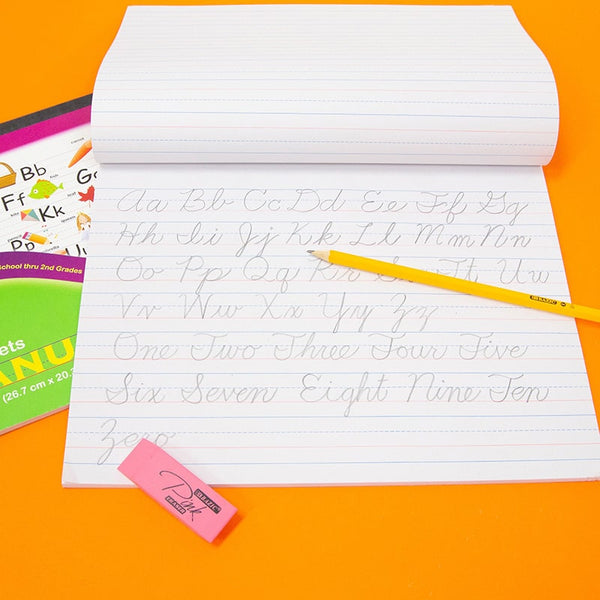 Aa Bb Cc Dd Ee Ff Gg
Hh Ii Jj Kk Ll Mm Nn
Oo Pp Qq Rr Ss Tt Uu
Vv Ww Xx Yy Zz
One Two Three Four Five
Six Seven Eight Nine Ten
Zero
Bb
Ff
Kk
Pp
School thru 2nd Grades
ets
ANU
(26.7 cm x 20.3
BAZIC
BAZIC
Pink
ERASER